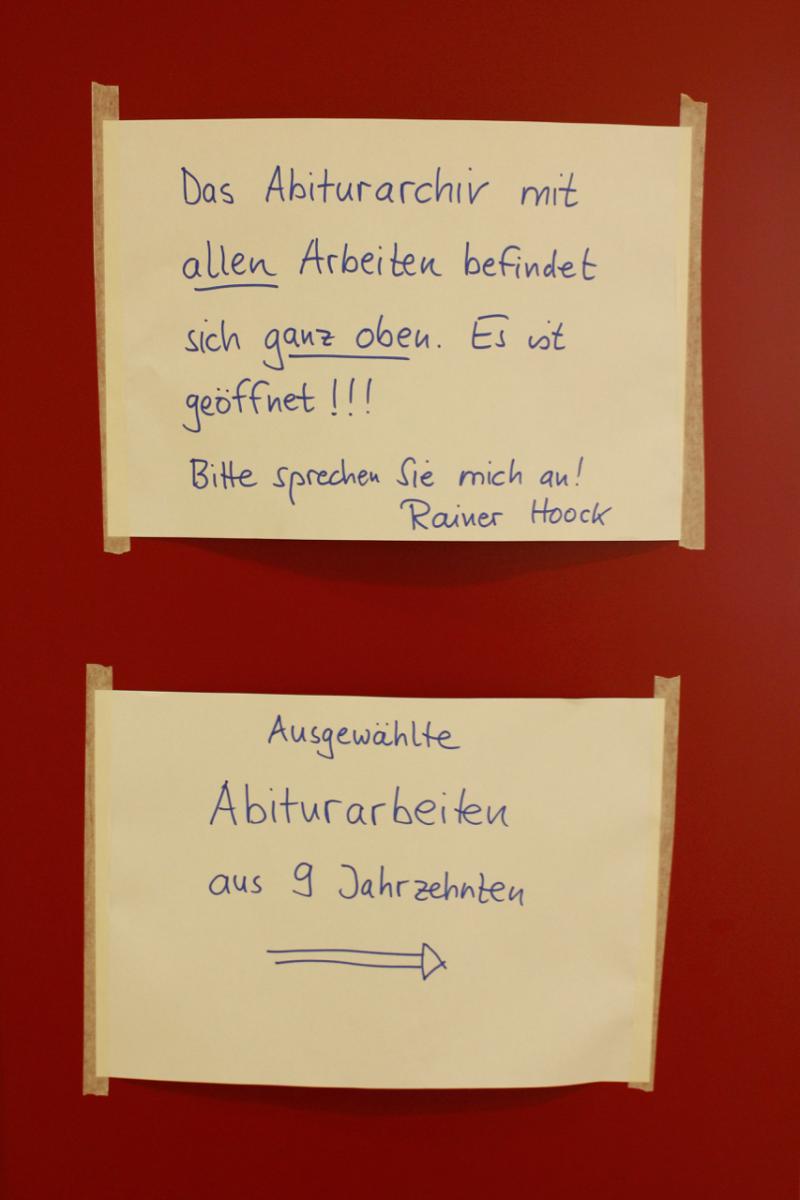 Das Abiturarchiv mit
allen Arbeiten befindet
sich ganz oben. Es ist
geöffnet !!!
Bitte sprechen Sie mich an!
Rainer Hoock
Ausgewählte
Abiturarbeiten
aus 9 Jahrzehnten